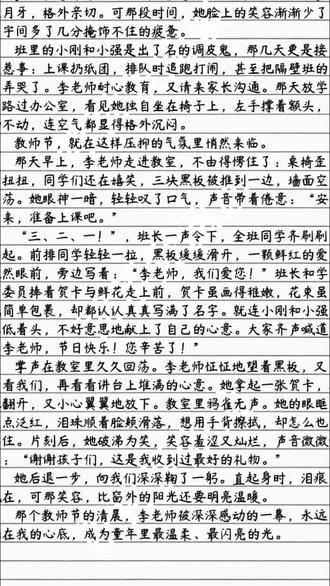 月牙，格外亲切。可那段时间，她脸上的笑容渐渐少了
宇间多了几分掩饰不住的疲惫。
班里的小刚和小强是出了名的调皮鬼，那几天更是接
惹事：上课扔纸团，排队时追跑打闹，甚至把隔壁班的
弄哭了。李老师耐心教育，又请来家长沟通。那天放学
路过办公室，看见她独自坐在椅子上，左手撑着额头，
不动，连空气都显得格外沉闷。
教师节，就在这样压抑的气氛里悄然来临。
那天早上，李老师走进教室，不由得愣住了：桌椅歪
扭扭，同学们还在嬉笑，三块黑板被推到一边，墙面空
荡。她眼神一暗，轻轻叹了口气，声音带着倦意：“安
来，准备上课吧。”
“三、二、一！”，班长一声令下，全班同学齐刷刷
起。前排同学轻轻一拉，黑板缓缓滑开，一颗鲜红的爱
然眼前，旁边写着：“李老师，我们爱您！”班长和学
委员捧着贺卡与鲜花走上前，贺卡虽画得稚嫩，花束虽
简单包裹，却都认认真真写满了名字。就连小刚和小强
低着头，不好意思地献上了自己的心意。大家齐声喊道
李老师，节日快乐！您辛苦了！”
掌声在教室里久久回荡。李老师怔怔地望着黑板，又
看我们，再看看讲台上堆满的心意。她拿起一张贺卡，
翻开，又小心翼翼地放下。教室里鸦雀无声。她的眼眶
点泛红，泪珠顺着脸颊滑落，想用手背擦拭，却怎么也
住。片刻后，她破涕为笑，笑容羞涩又灿烂，声音微微
：“谢谢孩子们，这是我收到过最好的礼物。”
她后退一步，向我们深深鞠了一躬。直起身时，泪痕
在，可那笑容，比窗外的阳光还要明亮温暖。
那个教师节的清晨，李老师被深深感动的一幕，永远
在我的心底，成为童年里最温柔、最闪亮的光。